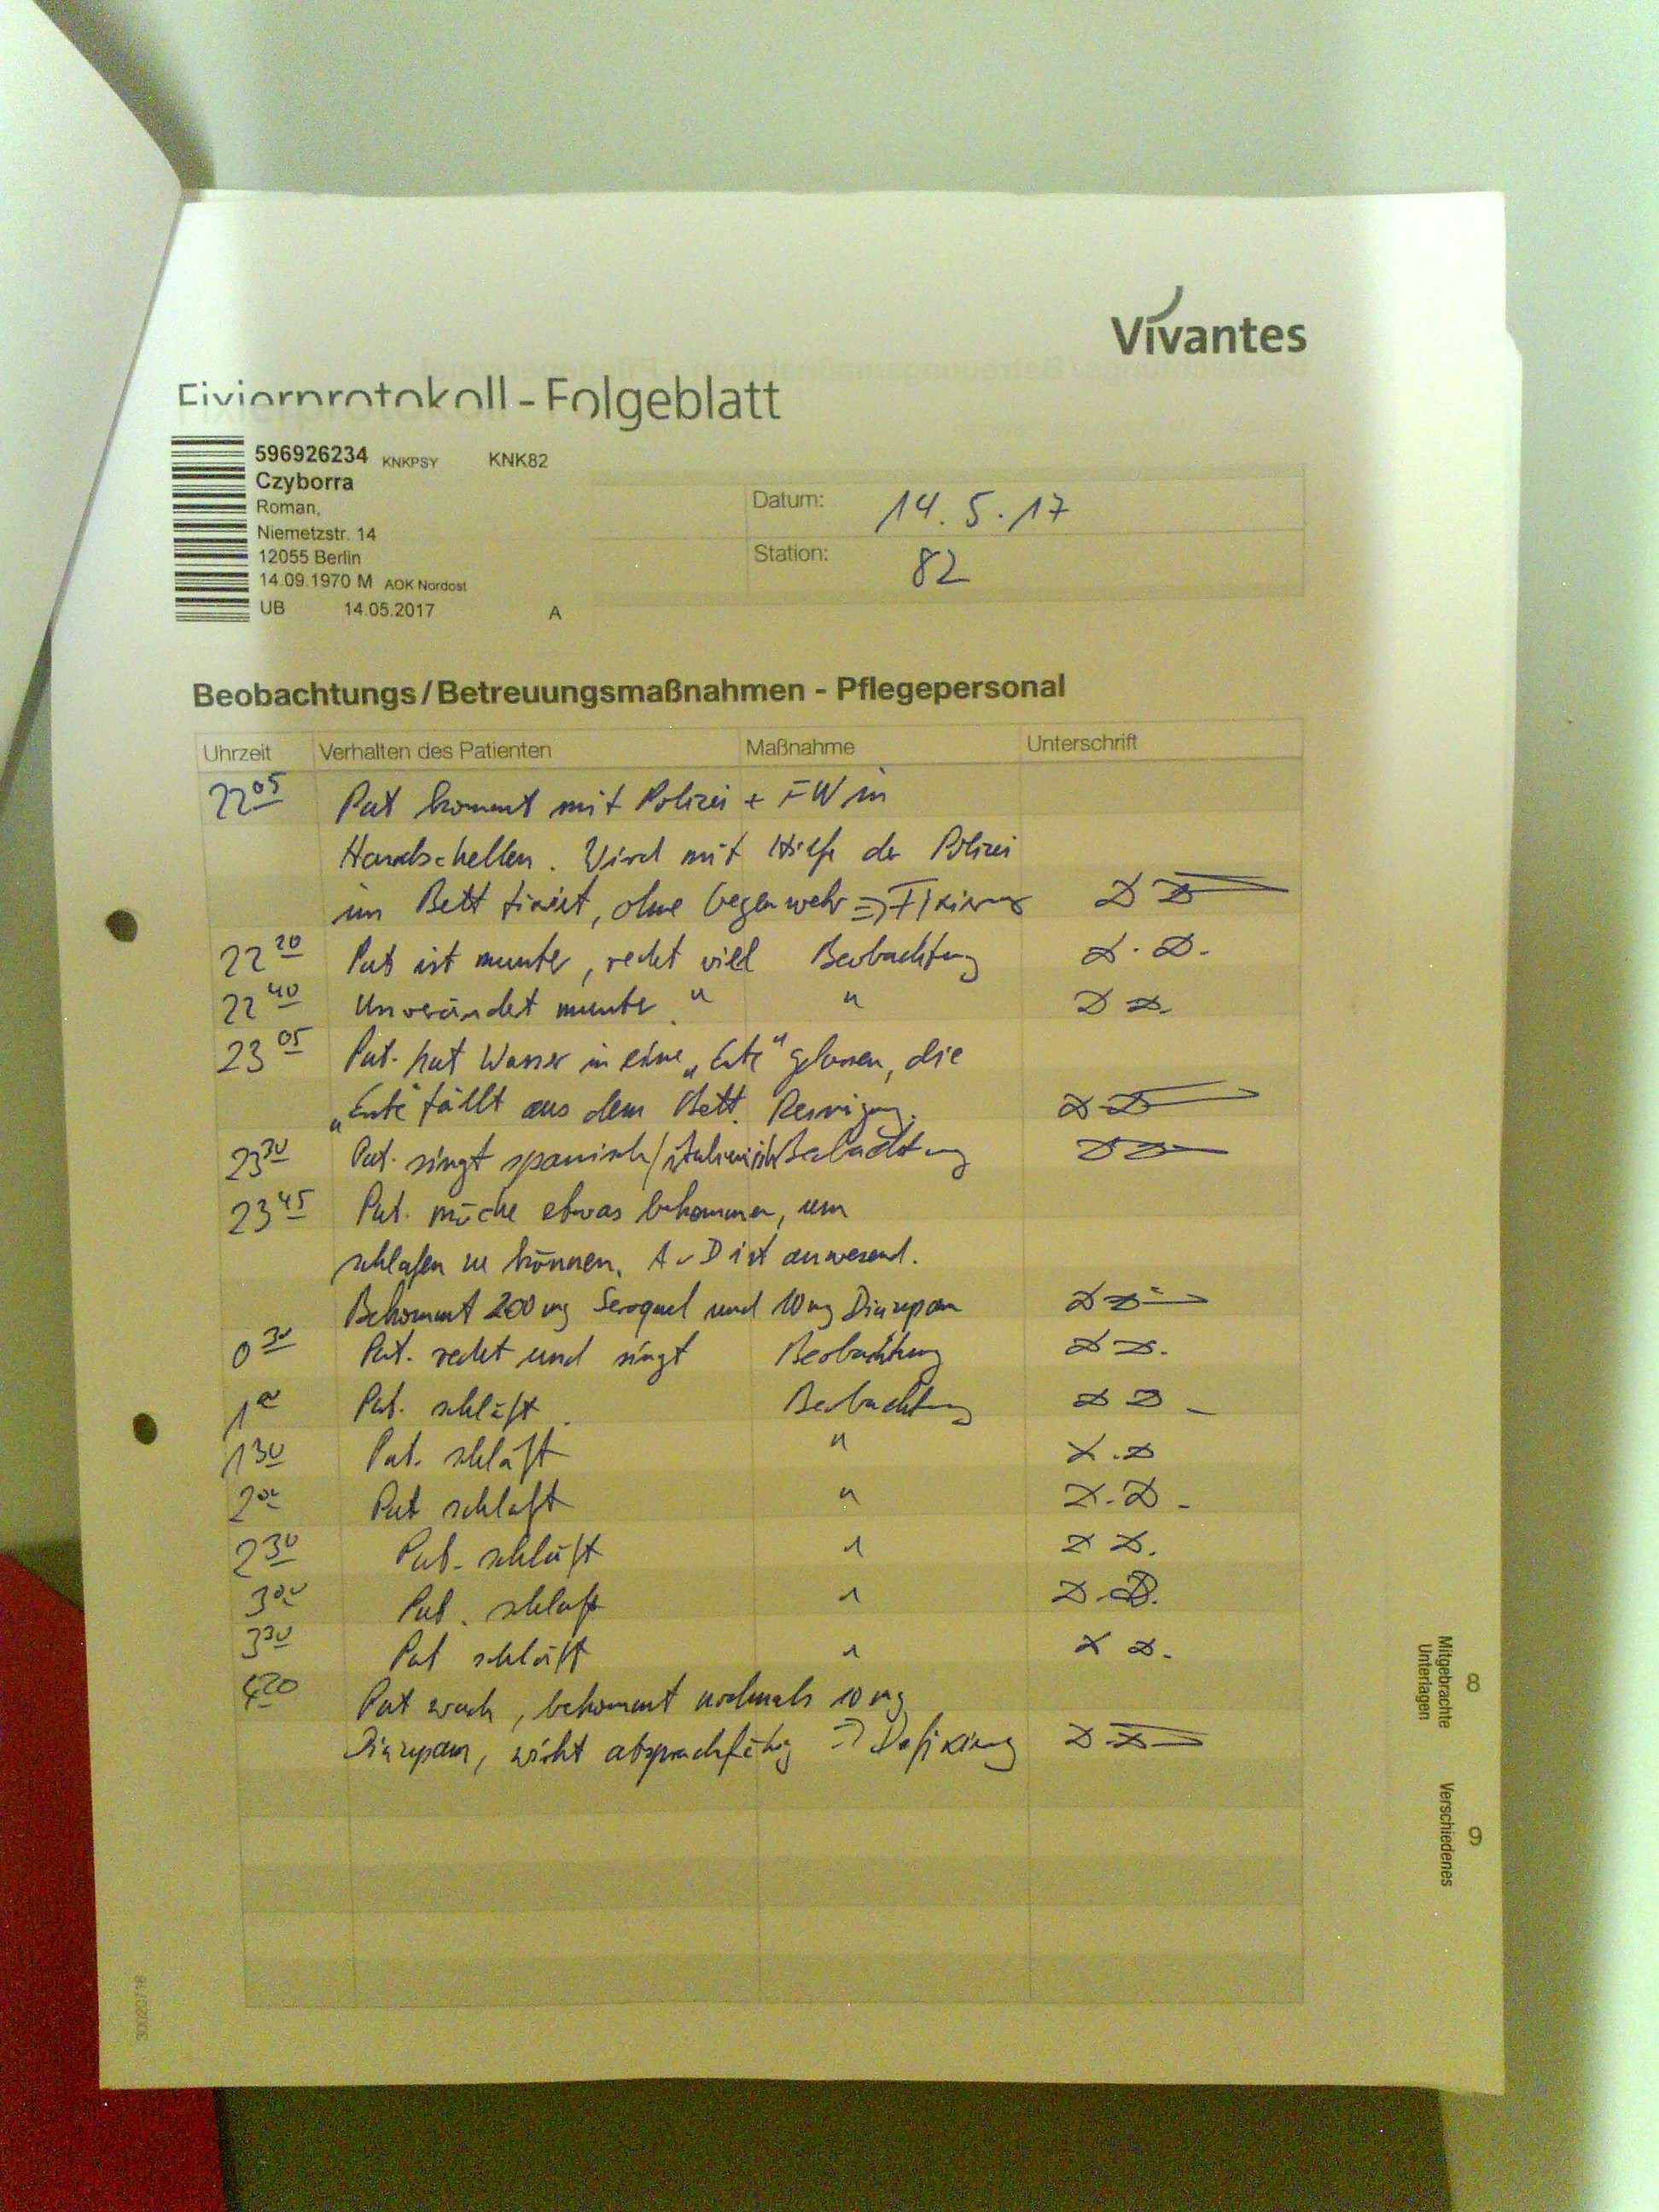 Vivantes
Fixierprotokoll - Folgeblatt
596926234 KNKPSY KNK82
Czyborra
Roman,
Niemetzstr. 14
12055 Berlin
14.09.1970 M AOK Nordost
UB 14.05.2017 A
Datum: 14.5.17
Station: 82
Beobachtungs/Betreuungsmaßnahmen - Pflegepersonal
Uhrzeit Verhalten des Patienten Maßnahme Unterschrift
22 05 Pat kommt mit Polizei + FW in
Handschellen. Wird mit Hilfe der Polizei
im Bett fixiert, ohne Gegenwehr => Fixierung
22 20 Pat ist munter, redet viel Beobachtung
22 40 Unverändert munter " "
23 05 Pat. hat Wasser in eine „Ente" gelassen, die
„Ente" fällt aus dem Bett. Reinigung.
23 30 Pat. singt spanisch/italienisch Beobachtung
23 45 Pat. möche etwas bekommen, um
schlafen zu können. AvD ist anwesend.
Bekommt 200 mg Seroquel und 10 mg Diazepam
0 30 Pat. redet und singt Beobachtung
1 00 Pat. schläft. Beobachtung
1 30 Pat. schläft "
2 00 Pat schläft "
2 30 Pat. schläft "
3 00 Pat. schläft "
3 30 Pat schläft "
4 20 Pat wach, bekommt nochmals 10 mg
Diazepam, wirkt absprachfähig => Defixierung
Mitgebrachte Unterlagen 8
Verschiedenes 9
30020718